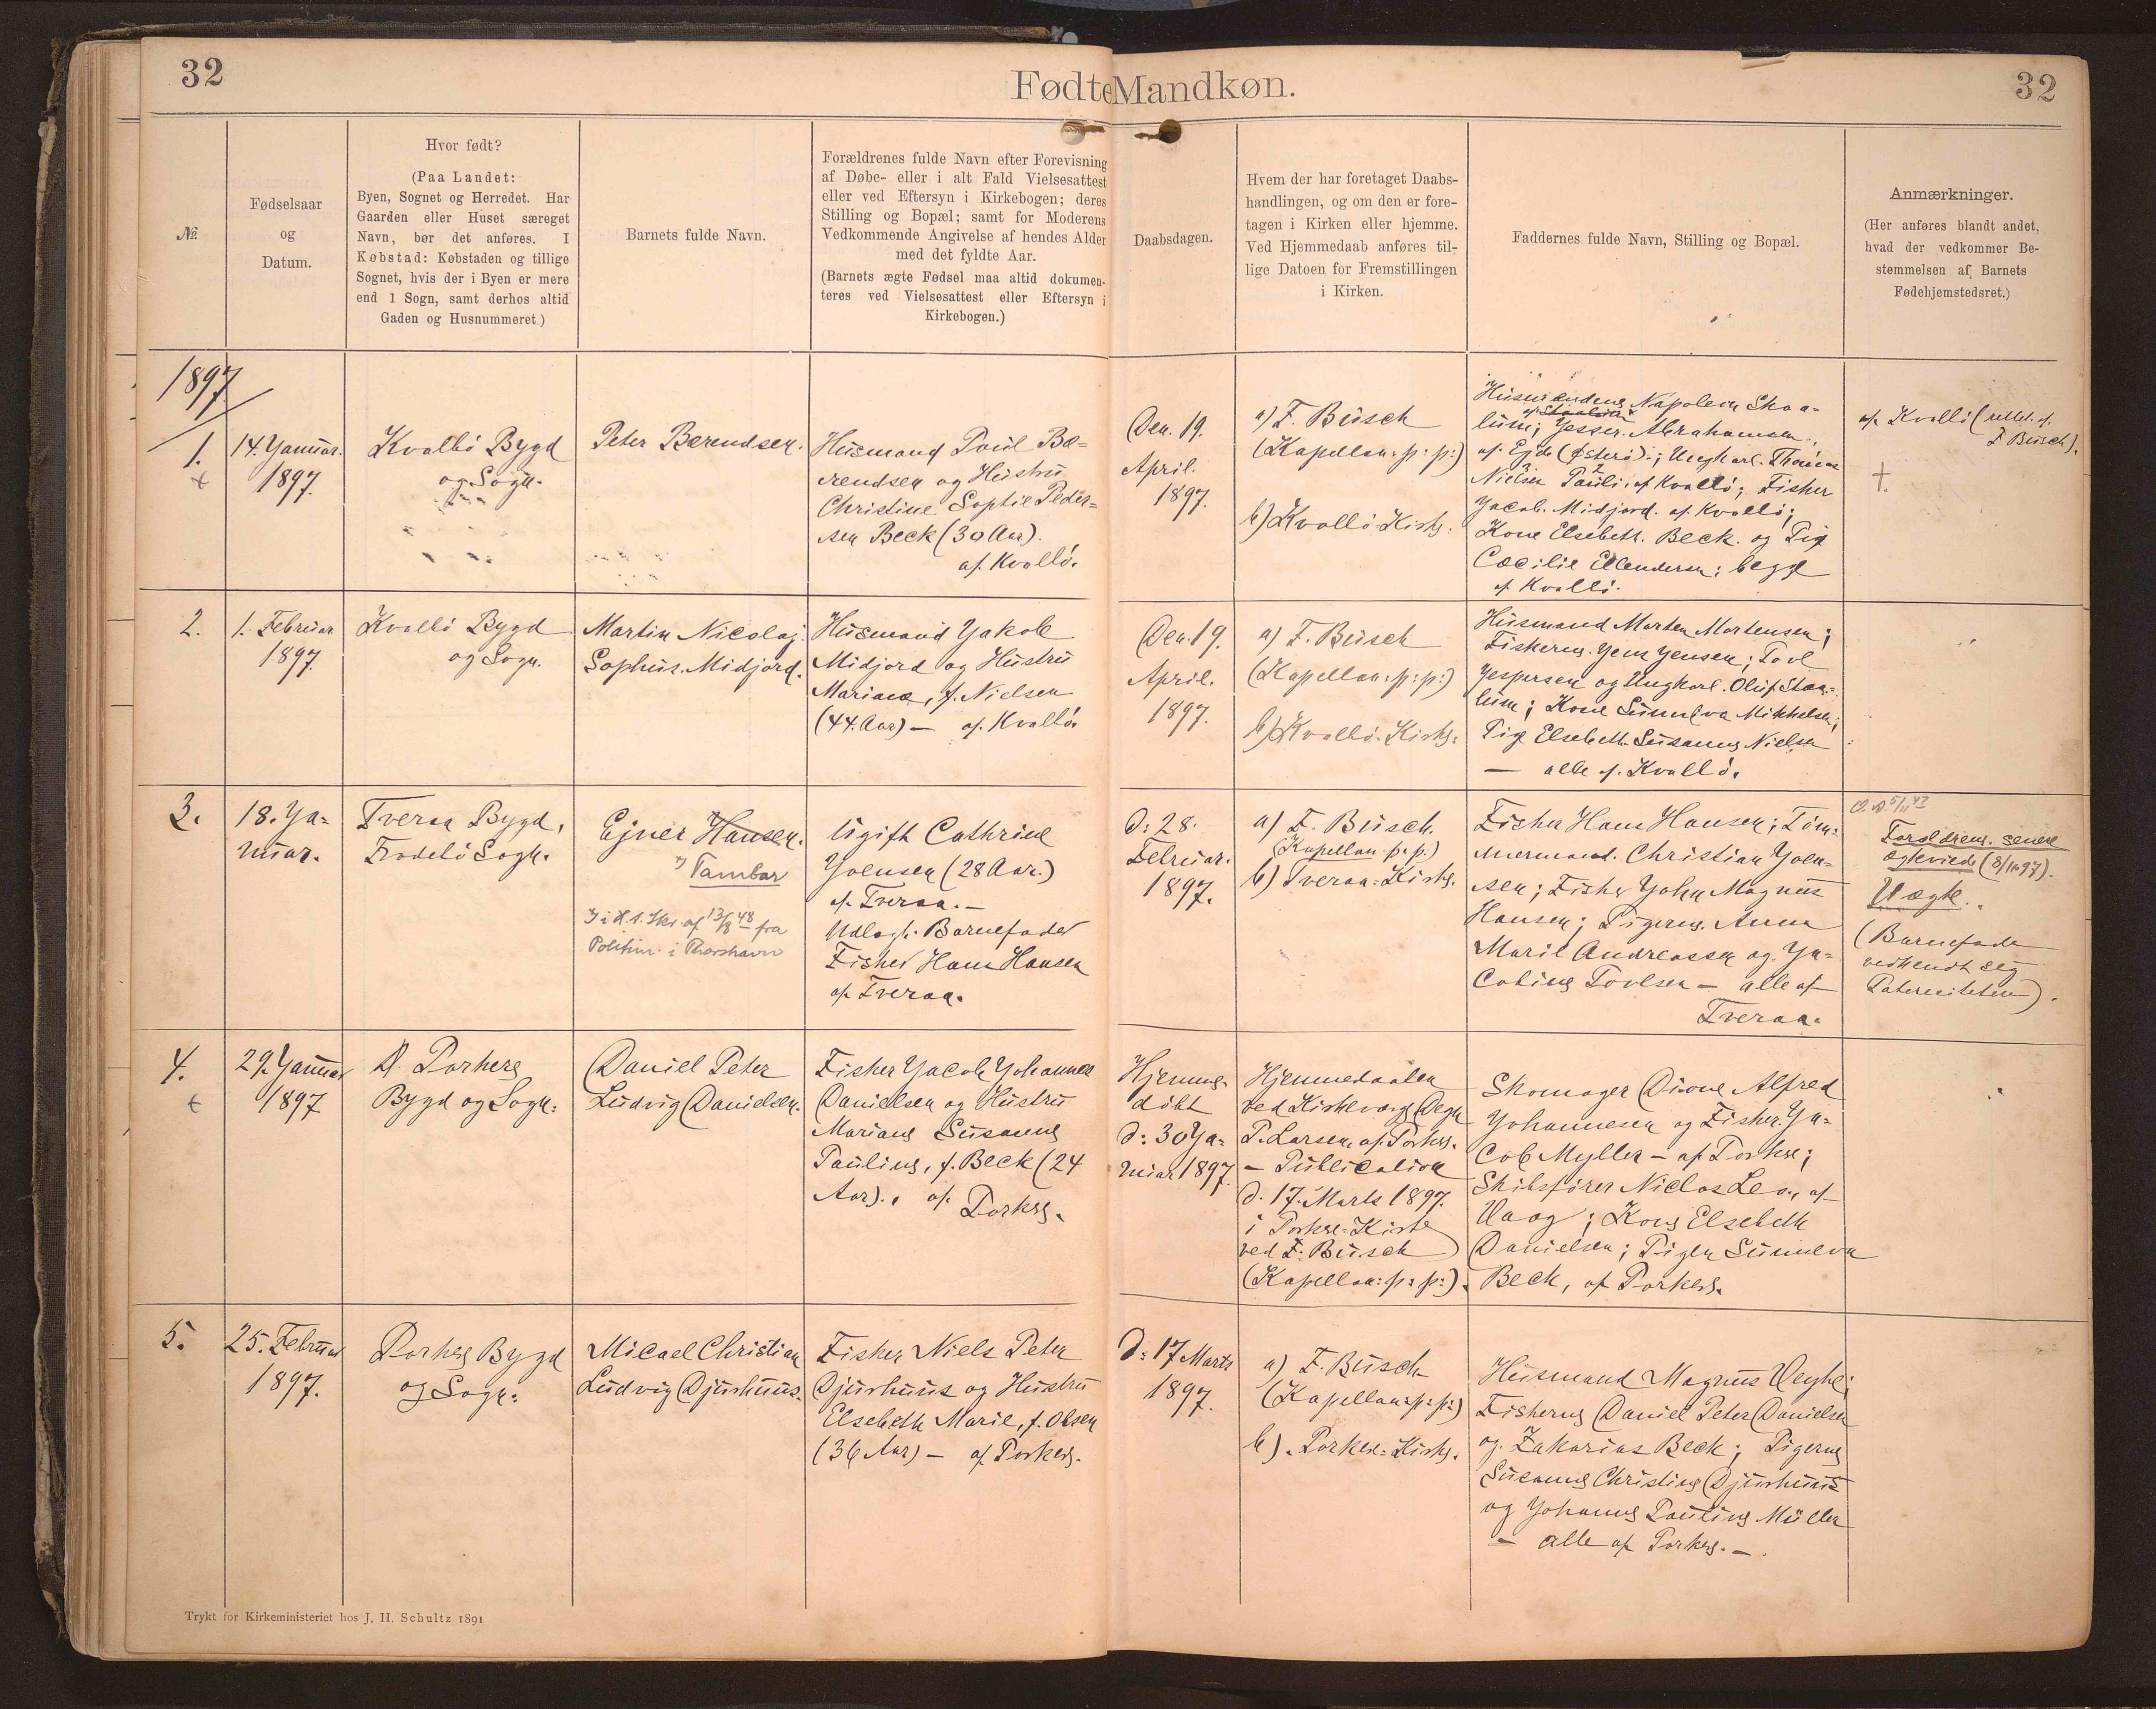 32
Fødte Mandkøn.
32
№.
Fødselsaar
og
Datum.
Hvor født?
(Paa Landet:
Byen, Sognet og Herredet. Har
Gaarden eller Huset særeget
Navn, bør det anføres. I
Købstad: Købstaden og tillige
Sognet, hvis der i Byen er mere
end 1 Sogn, samt derhos altid
Gaden og Husnummeret.)
Barnets fulde Navn.
Forældrenes fulde Navn efter Forevisning
af Døbe- eller i alt Fald Vielsesattest
eller ved Eftersyn i Kirkebogen; deres
Stilling og Bopæl; samt for Moderens
Vedkommende Angivelse af hendes Alder
med det fyldte Aar.
(Barnets ægte Fødsel maa altid dokumen-
teres ved Vielsesattest eller Eftersyn i
Kirkebogen.)
Daabsdagen.
Hvem der har foretaget Daabs-
handlingen, og om den er fore-
tagen i Kirken eller hjemme.
Ved Hjemmedaab anføres til-
lige Datoen for Fremstillingen
i Kirken.
Faddernes fulde Navn, Stilling og Bopæl.
Anmærkninger.
(Her anføres blandt andet,
hvad der vedkommer Be-
stemmelsen af Barnets
Fødehjemstedsret.)
1897
1.
+
14. Januar.
1897.
Kvalbö Bygd
og Sogn.
Peter Berendsen.
Husmand Poul Be-
rendsen og Hustru
Christine Sophie Peder-
sen Beck (30 Aar).
af Kvalbö.
Den 19.
April.
1897.
a) F. Busch
(Kapellan: p: p:)
b) Kvalbö Kirke.
Husmændene Napoleon Skaa-
lum; Jesper Abrahamsen,
af Ejde (Österö).; Ungkarl. Thomas
Nielsen Pauli, af Kvalbö; Fisker
Jacob. Midjord. af Kvalbö;
Kone Elsebeth. Beck. og Pige
Cæcilie Ellendersen; begge
af Kvalbö.
af. Kvalbö (rettet. af.
F Busch).
†.
2.
1. Februar
1897.
Kvalbö Bygd
og Sogn.
Martin Nicolaj
Sophus. Midjord.
Husmand Jakob
Midjord og Hustru
Mariane, f. Nielsen
(44. Aar) — af. Kvalbö.
Den. 19.
April.
1897.
a) F. Busch
(Kapellan: p: p:)
b) Kvalbö. Kirke.
Husmand Morten Mortensen;
Fiskerne. Jens Jensen; Povl
Jespersen og Ungkarl. Oluf Skaa-
lum; Kone Sunneva Mikkelsen;
Pige Elsebeth. Susanne Nielsen
— alle af. Kvalbö.
3.
18. Ja-
nuar.
Tveraa Bygd,
Frodebö Sogn.
Ejner Hansen.
Tambar
I i H. t. Skr. af 13/8 48 fra
Politim. i Thorshavn
Ugift Cathrine
Joensen (28 Aar.)
af. Tveraa. —
Udlagt. Barnefader
Fisker Hans Hansen
af. Tveraa.
d: 28.
Februar.
1897.
a) F. Busch.
(Kapellan p. p.)
b) Tveraa-Kirke.
Fisker Hans Hansen; Töm-
mermand. Christian Joen-
sen; Fisker John Magnus
Hansen; Pigerne. Anna
Marie Andreassen og. Ja-
cobine Povlsen — alle af
Tveraa.
Forældrene. senere
ægteviede (8/10 97).
Uægte.
(Barnefader
vedkendt sig
Paterniteten).
4.
+
29. Januar
1897
Porkere
Bygd og Sogn.
Daniel Peter
Ludvig Danielsen.
Fisker Jacob Johannes
Danielsen og Hustru
Mariane Susanne
Pauline, f. Beck (24
Aar)., af. Porkere.
Hjemme-
döbt
d: 30 Ja-
nuar 1897.
Hjemmedaaben
ved Kirkeværge Degn
P. Larsen, af. Porkere.
— Publication
d. 17. Marts 1897.
i Porkere-Kirke
ved F. Busch
(Kapellan: p: p:).
Skomager Dione Alfred
Johannesen og Fisker. Ja-
cob Myller — af Porkere;
Skibsförer Niclas Leo., af
Vaag; Kone Elsebeth
Danielsen; Pigen Sunneva
Beck, af Porkere.
5.
25. Februar
1897.
Porkere Bygd
og Sogn.
Micael Christian
Ludvig Djurhuus.
Fisker Niels Peter
Djurhuus og Hustru
Elsebeth Marie, f. Olsen
(36 Aar) — af Porkere.
d: 17 Marts
1897.
a) F. Busch
(Kapellan: p: p:)
b). Porkere-Kirke.
Husmand Magnus Veyhe;
Fiskerne Daniel Peter Danielsen
og. Zakarias Beck; Pigerne
Susanne Christine Djurhuus
og Johanne Pauline Müller
— alle af Porkere. —
Trykt for Kirkeministeriet hos J. H. Schultz 1891